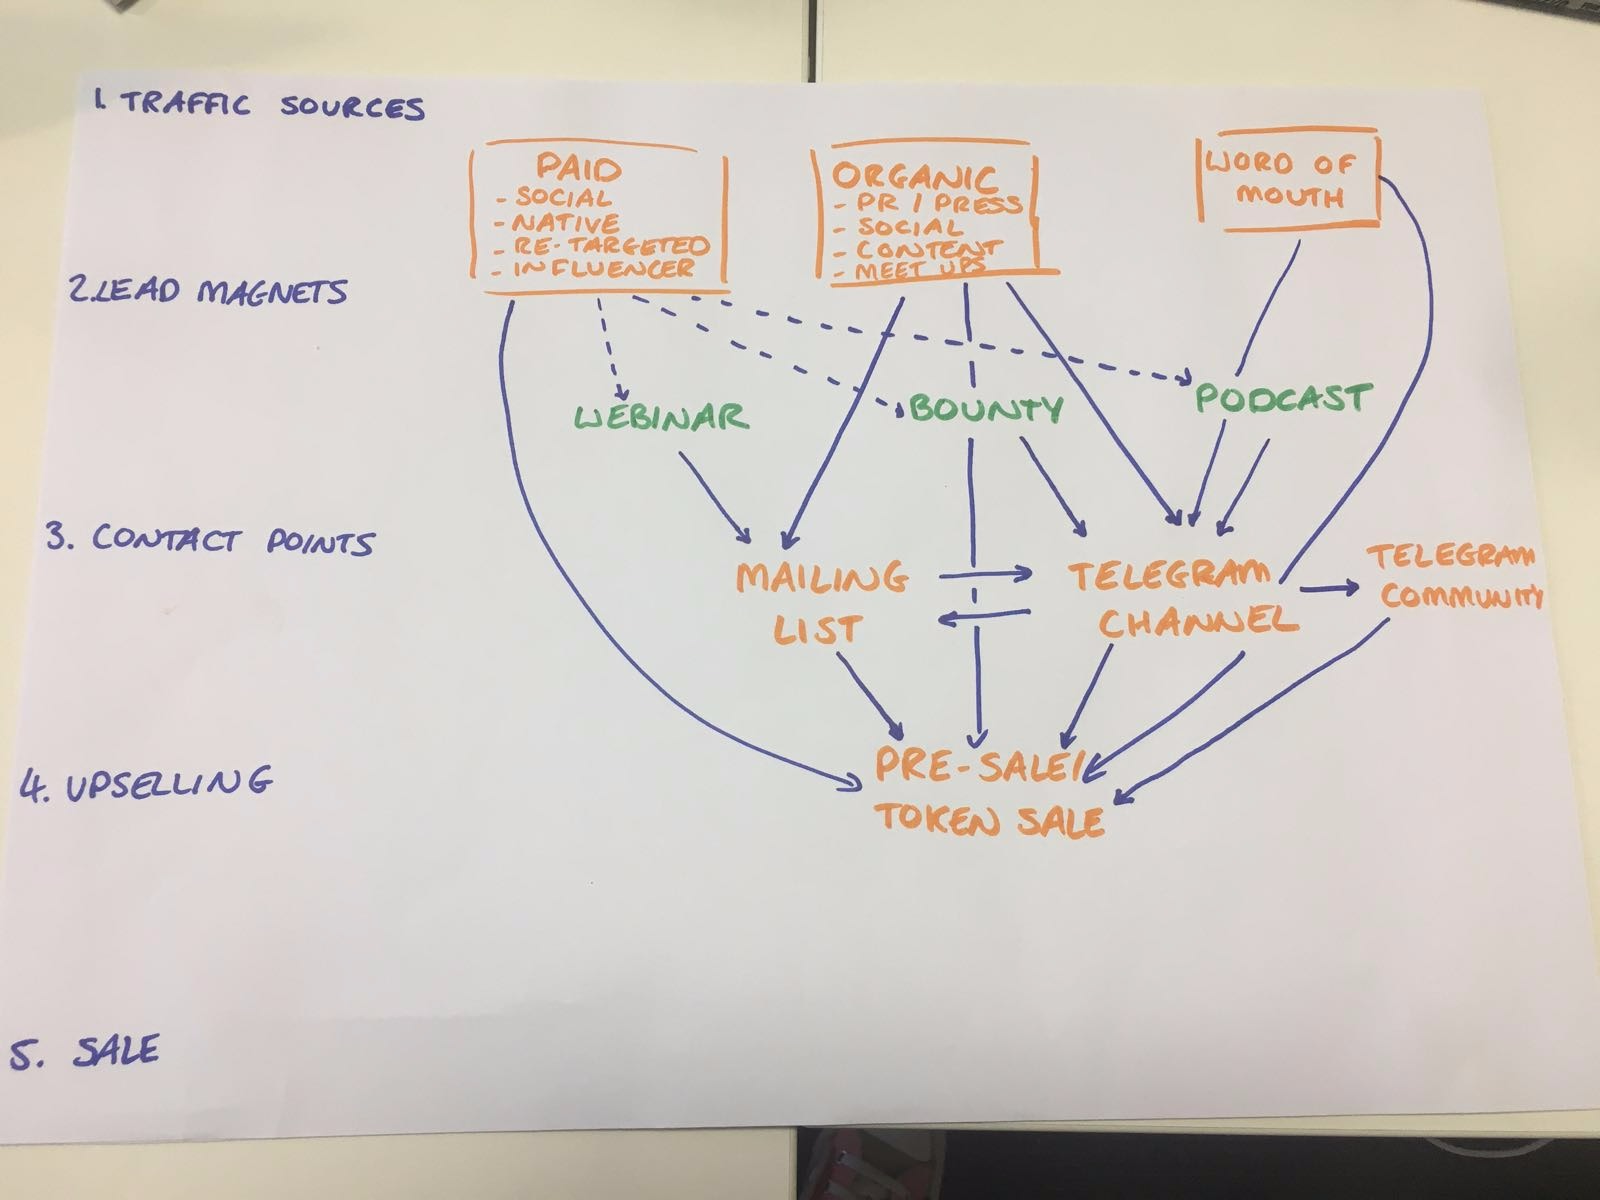 1. TRAFFIC SOURCES
PAID
- SOCIAL
- NATIVE
- RE-TARGETED
- INFLUENCER
ORGANIC
- PR / PRESS
- SOCIAL
- CONTENT
- MEET UPS
WORD OF
MOUTH
2. LEAD MAGNETS
WEBINAR
BOUNTY
PODCAST
3. CONTACT POINTS
MAILING
LIST
TELEGRAM
CHANNEL
TELEGRAM
COMMUNITY
4. UPSELLING
PRE-SALE/
TOKEN SALE
5. SALE